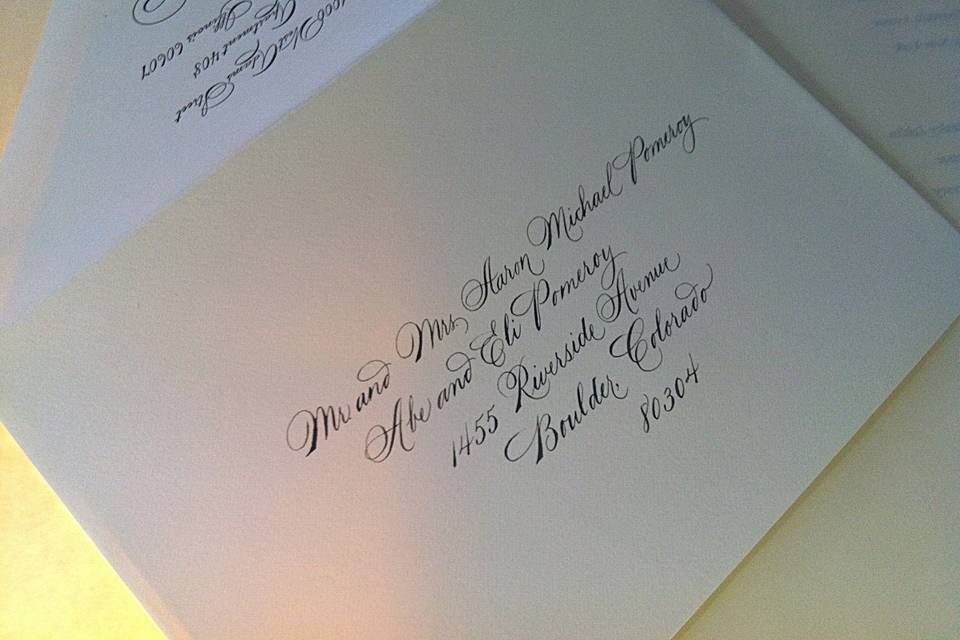 Mr. and Mrs. Aaron Michael Pomeroy
Abe and Eli Pomeroy
1455 Riverside Avenue
Boulder, Colorado
80304
West Adams Street
Apartment 408
Illinois 60607